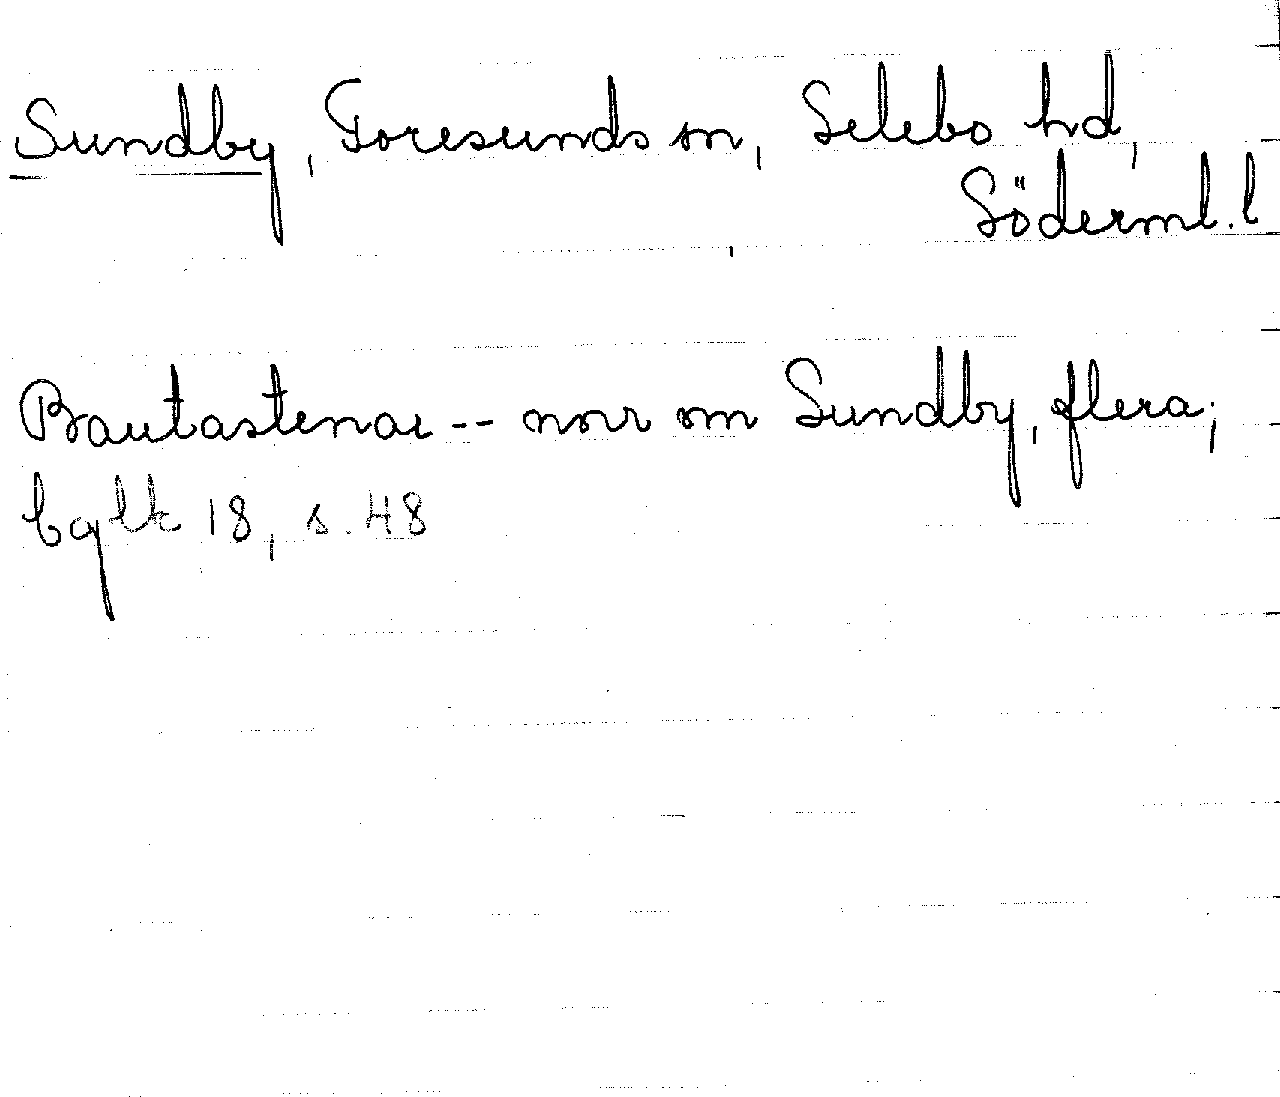 Sundby, Toresunds sn, Selebo hd,
Söderml. l
Bautastenar -- norr om Sundby, flera;
bgltk 18, s. 48